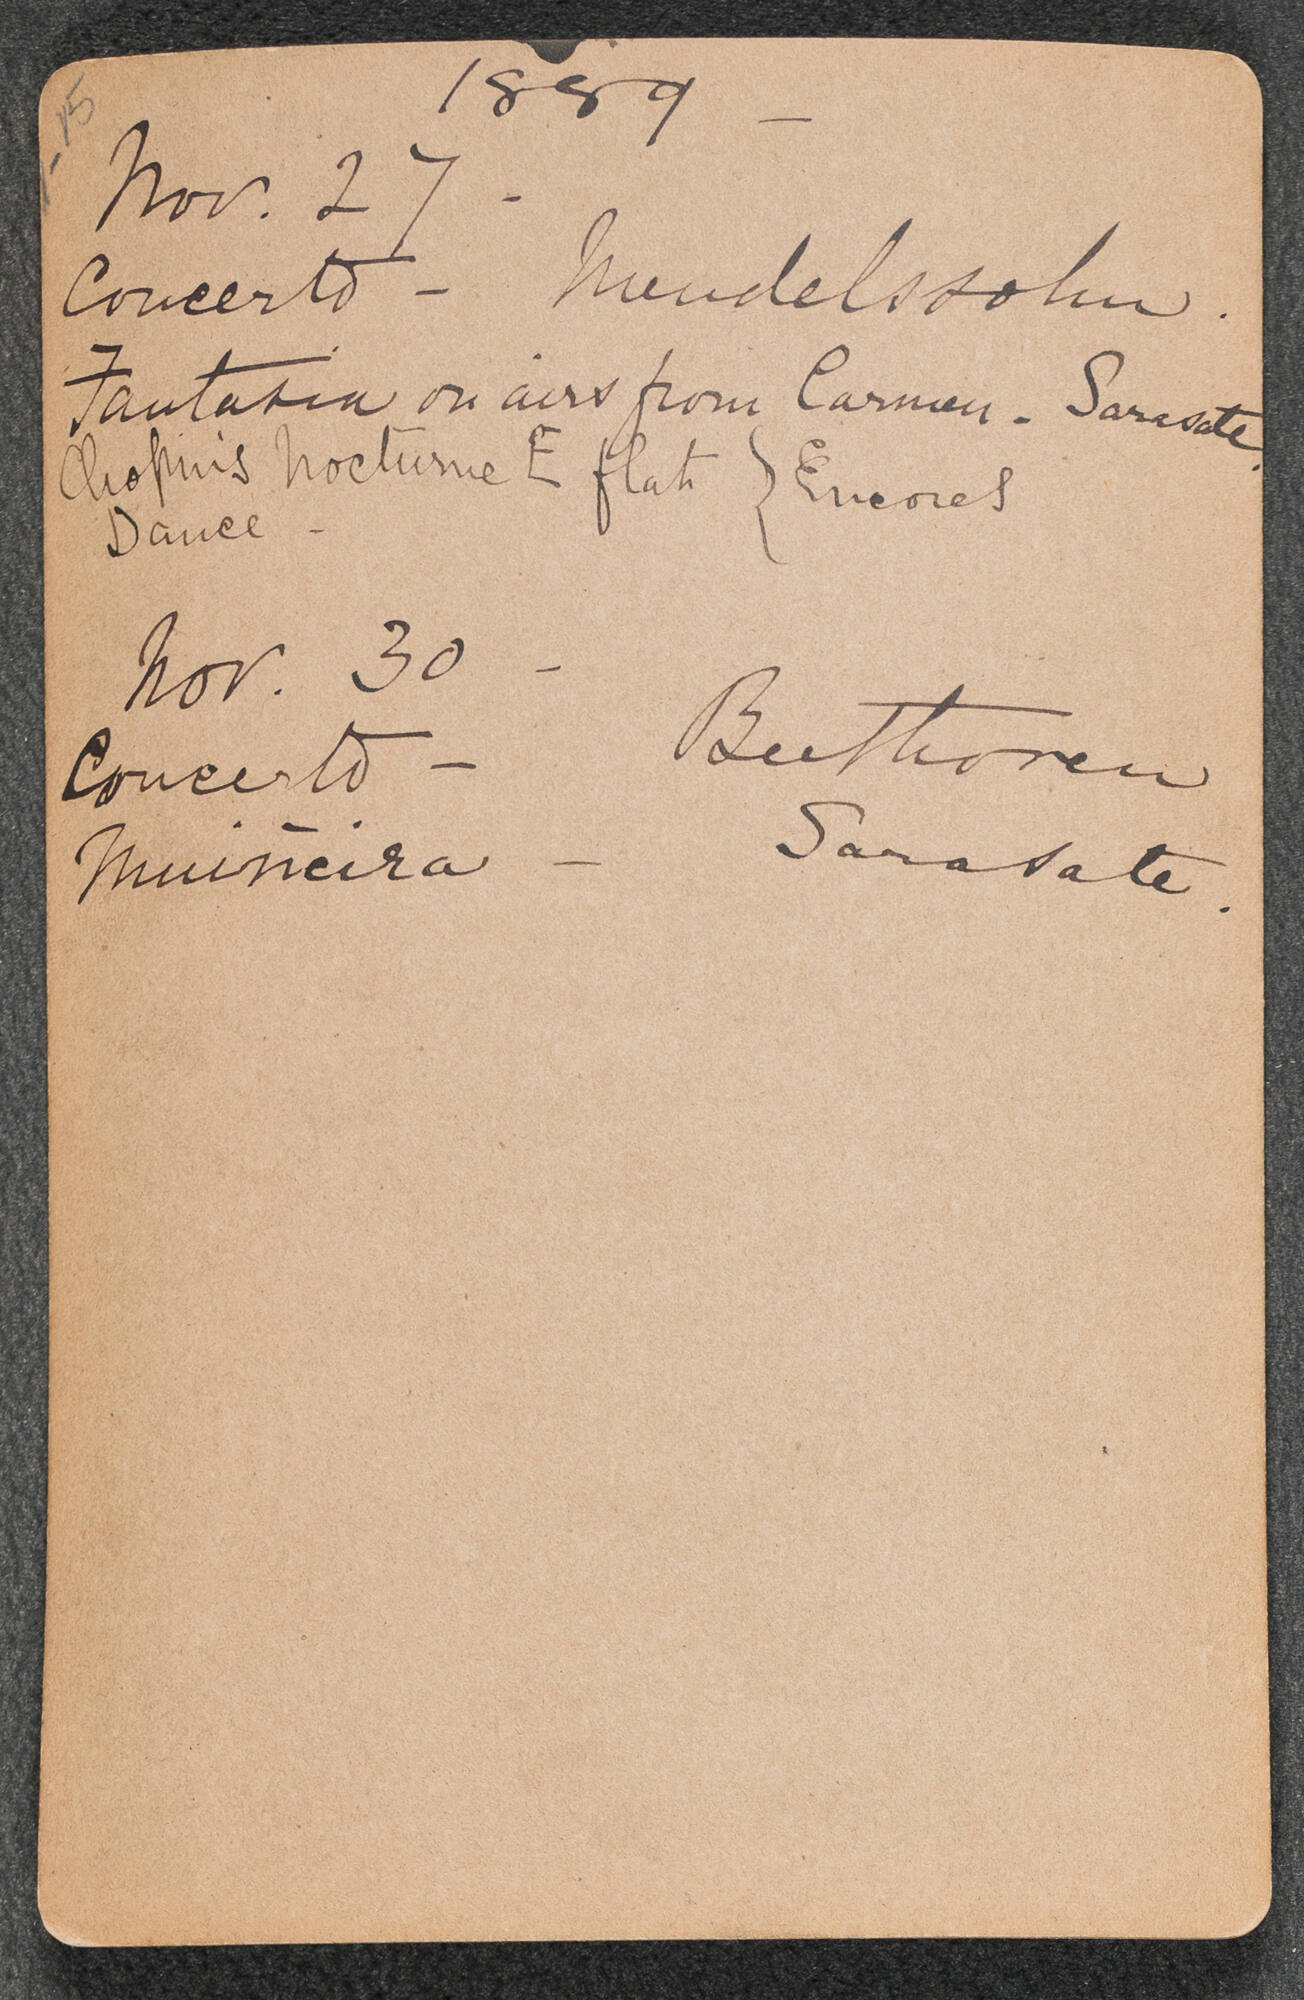 1889 -
Nov. 27 -
Concerto - Mendelssohn.
Fantasia on airs from Carmen - Sarasate.
Chopin's Nocturne E flat } Encores
Dance -
Nov. 30 -
Concerto - Beethoven
Muiñeira - Sarasate.